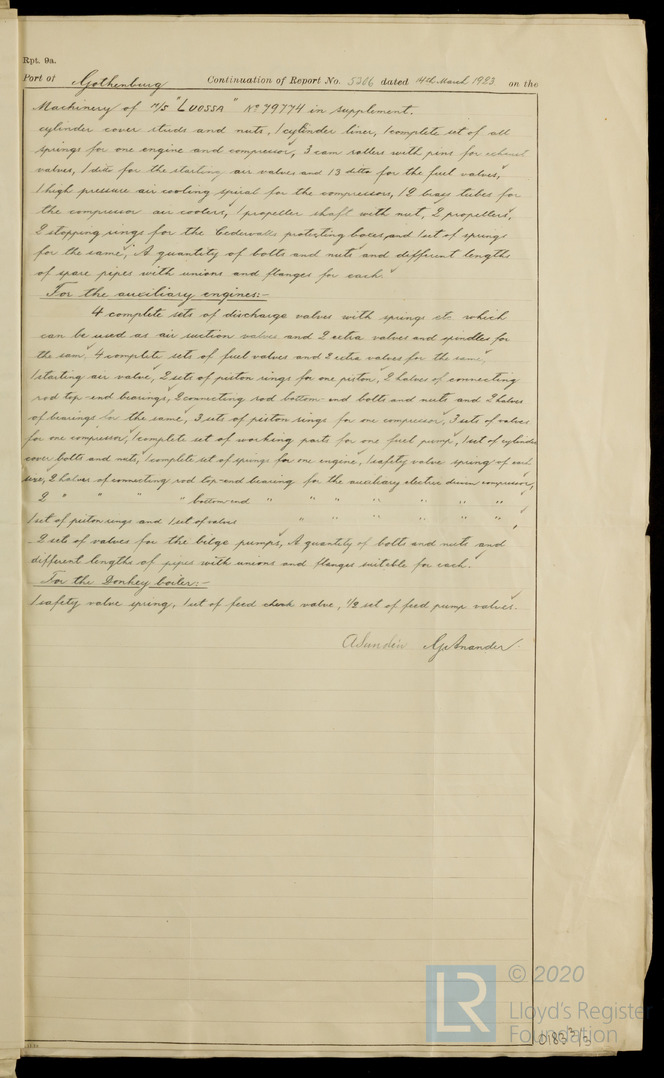 Rpt. 9a.
Port of Gothenburg Continuation of Report No. 5206 dated 14th March 1923 on the
Machinery of M/S "LUOSSA" No 79774 in supplement.
cylinder cover studs and nuts, 1 cylinder liner, 1 complete set of all
springs for one engine and compressor, 3 cam rollers with pins for exhaust
valves, 1 ditto for the starting air valves and 13 ditto for the fuel valves,
1 high pressure air cooling spiral for the compressors, 12 brass tubes for
the compressor air coolers, 1 propeller shaft with nut, 2 propellers,
2 stopping rings for the Cederwalls protecting boxes, and 1 set of springs
for the same, A quantity of bolts and nuts and different lengths
of spare pipes with unions and flanges for each.
For the auxiliary engines:-
4 complete sets of discharge valves with springs etc which
can be used as air suction valves and 2 extra valves and spindles for
the same, 4 complete sets of fuel valves and 2 extra valves for the same,
1 starting air valve, 2 sets of piston rings for one piston, 2 halves of connecting
rod top-end bearings, 2 connecting rod bottom-end bolts and nuts and 2 halves
of bearings for the same, 3 sets of piston rings for one compressor, 3 sets of valves
for one compressor, 1 complete set of working parts for one fuel pump, 1 set of cylinder
cover bolts and nuts, 1 complete set of springs for one engine, 1 safety valve spring of each
size, 2 halves of connecting rod top-end bearing for the auxiliary electric driven compressor,
2 " " " " bottom-end " " " " " " "
1 set of piston rings and 1 set of valves " " " " " "
2 sets of valves for the bilge pumps, A quantity of bolts and nuts and
different lengths of pipes with unions and flanges suitable for each.
For the Donkey boiler:-
1 safety valve spring, 1 set of feed check valve, 1/2 set of feed pump valves.
A Sundén
© 2020
LR
Lloyd's Register
Foundation